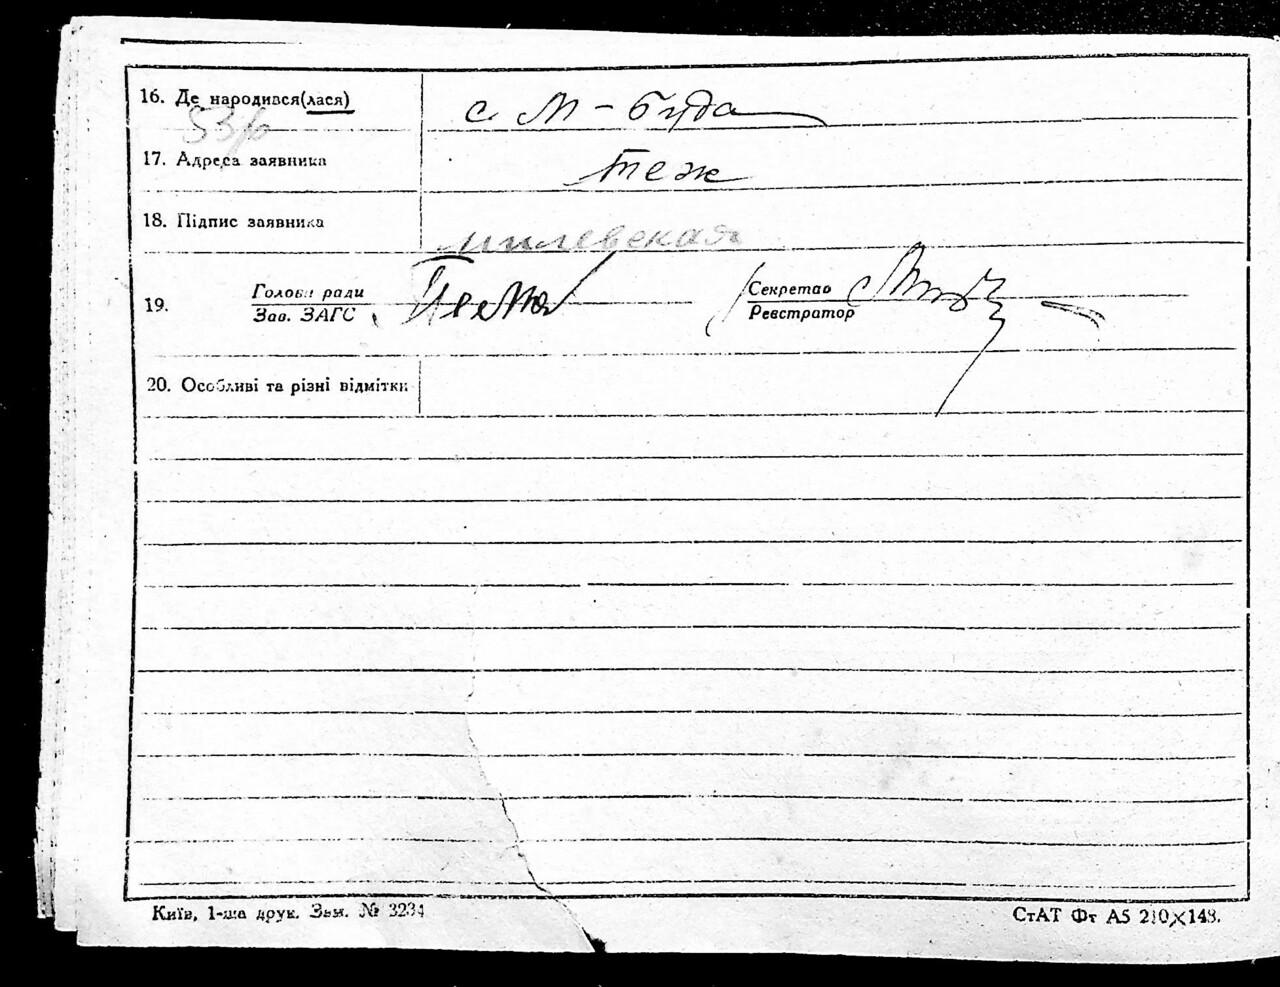 16. Де народився(лася) с. М-Буда
53р
17. Адреса заявника теж
18. Підпис заявника милевская
19. Голова ради Секретар
Зав. ЗАГС Реєстратор
20. Особливі та різні відмітки
Київ, 1-ша друк. Зам. № 3234 СтАТ Фт А5 210×148.